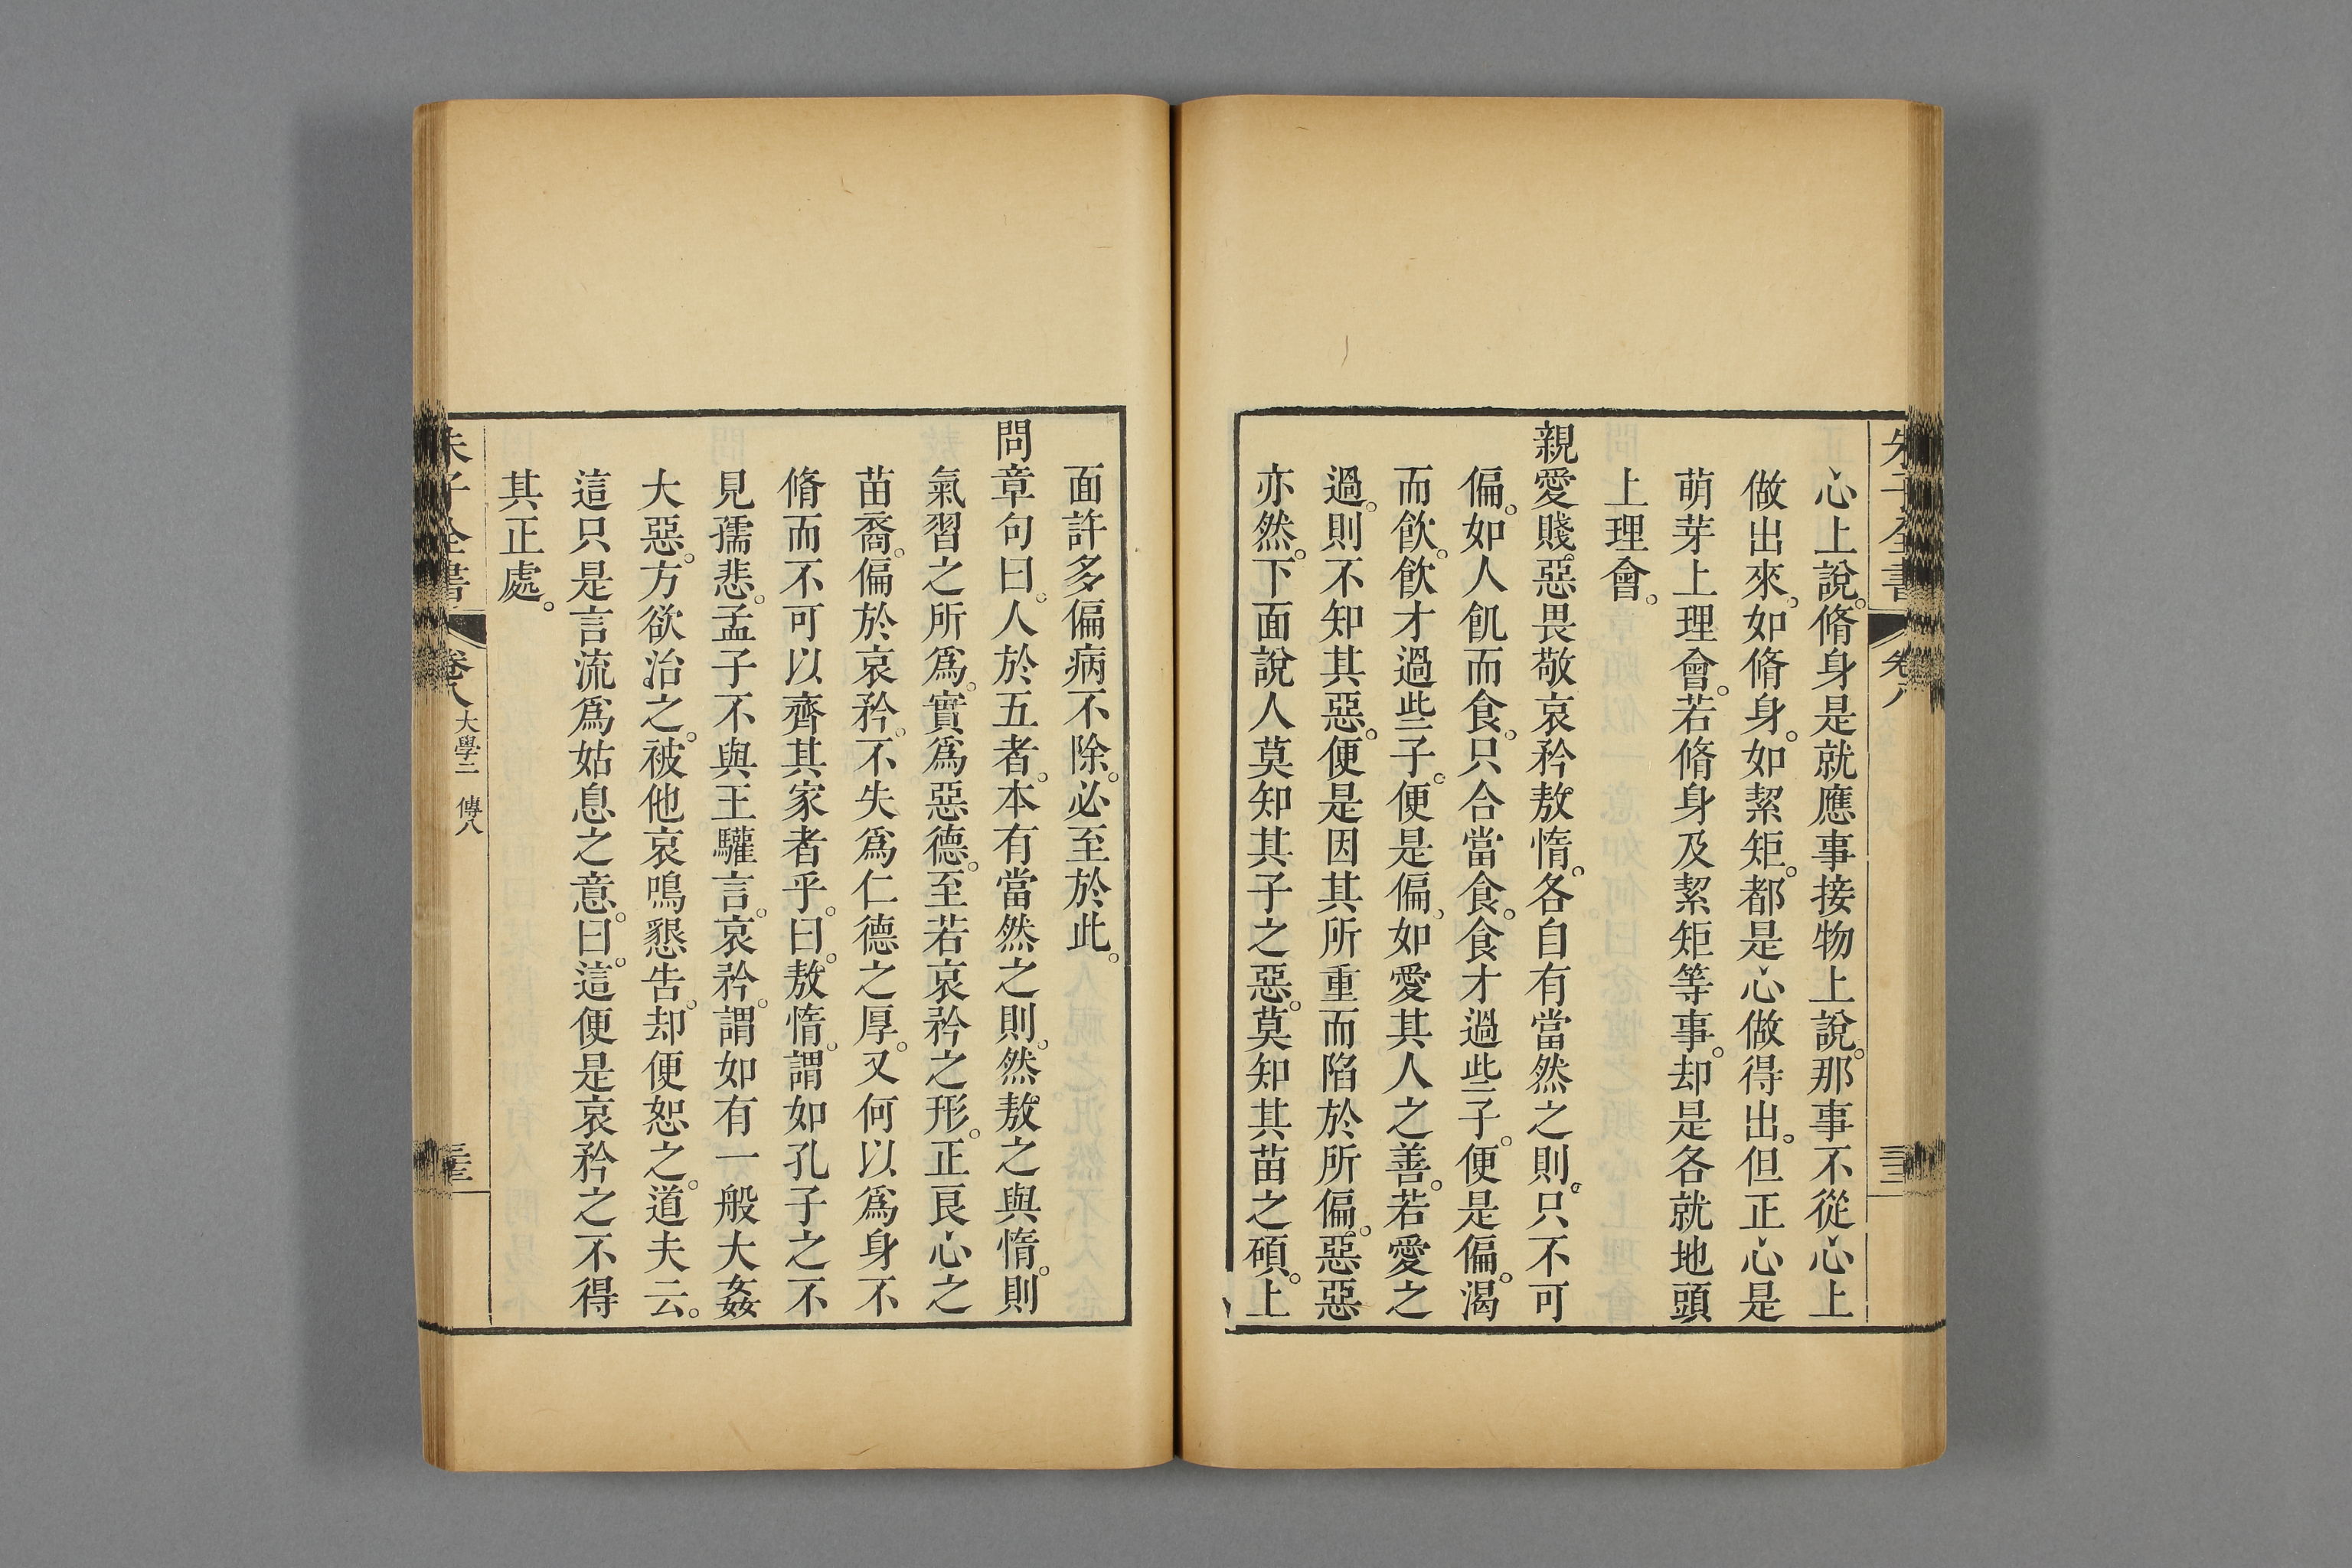 心上說。脩身是就應事接物上說。那事不從心上
做出來。如脩身。如絜矩。都是心做得出。但正心是
萌芽上理會。若脩身及絜矩等事。却是各就地頭
上理會。
親愛賤惡畏敬哀矜敖惰。各自有當然之則。只不可
偏。如人飢而食。只合當食。食才過些子。便是偏。渴
而飲。飲才過些子。便是偏。如愛其人之善。若愛之
過。則不知其惡。便是因其所重而陷於所偏。惡惡
亦然。下面說人莫知其子之惡。莫知其苗之碩。上
面許多偏病不除。必至於此。
問章句曰。人於五者。本有當然之則。然敖之與惰。則
氣習之所爲。實爲惡德。至若哀矜之形。正良心之
苗裔。偏於哀矜。不失爲仁德之厚。又何以爲身不
脩而不可以齊其家者乎。曰。敖惰。謂如孔子之不
見孺悲。孟子不與王驩言。哀矜。謂如有一般大姦
大惡。方欲治之。被他哀鳴懇告。却便恕之。道夫云。
這只是言流爲姑息之意。曰。這便是哀矜之不得
其正處。
朱子全書 卷八 大學二 傳八